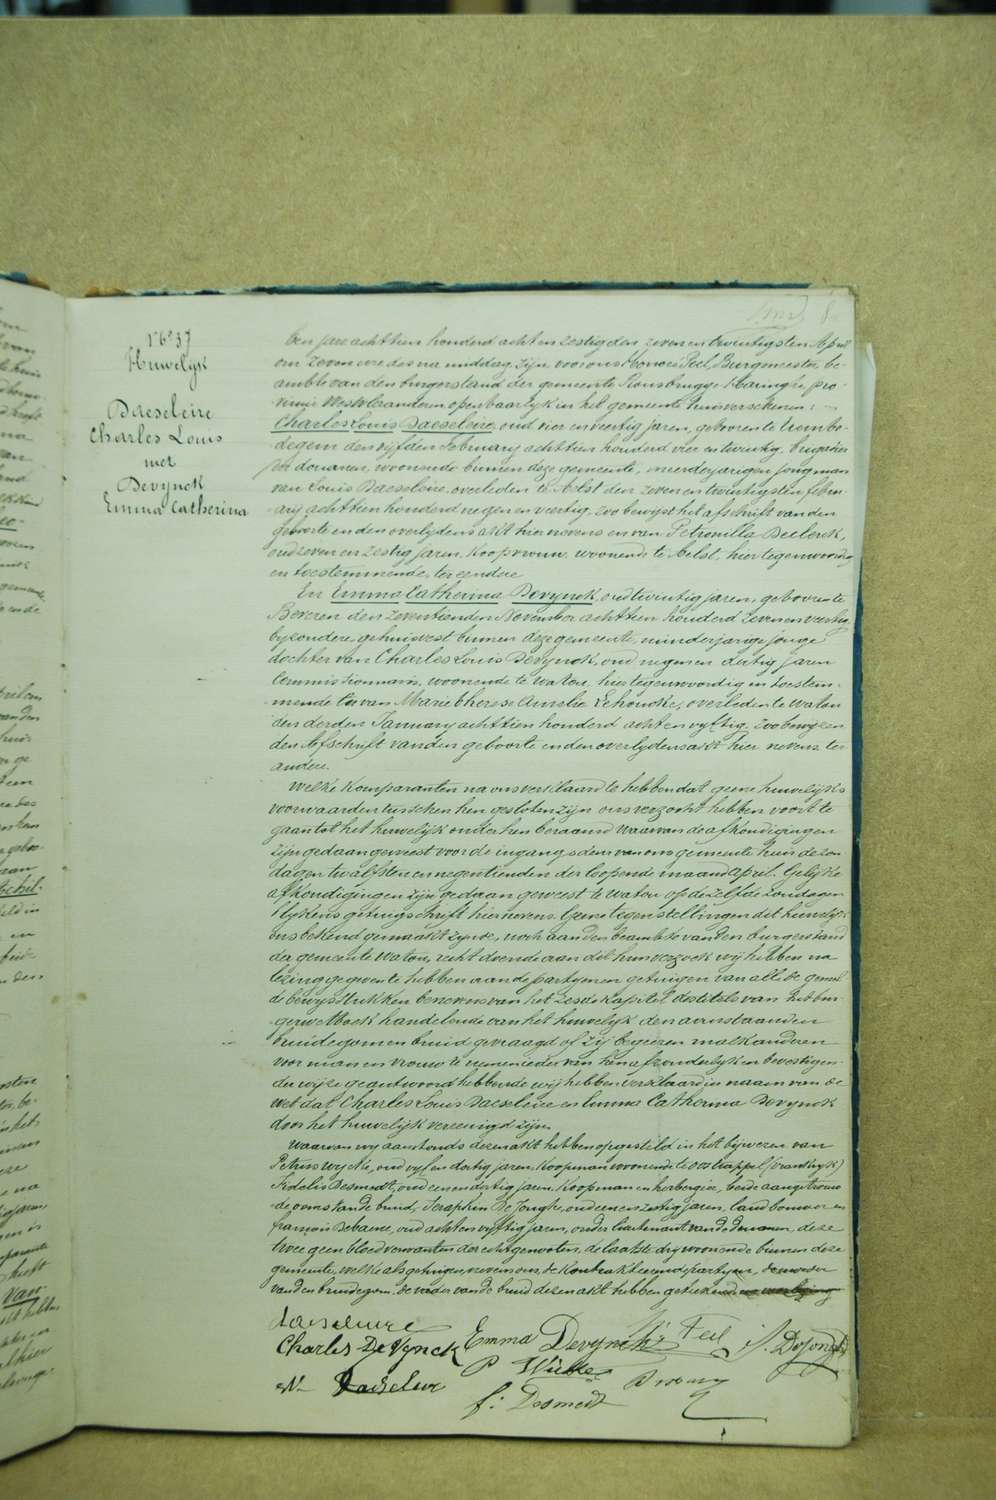 N° 37
Huwelijk
Daeseleire
Charles Louis
met
Devynck
Emma Catherina
den jare achttien honderd acht en zestig den zeven en twintigsten April
om zeven ure des na middag, zijn voor ons Peel, Burgemeester be-
ambte van den burgerstand der gemeente Rousbrugge Haringhe pro-
vincie Westvlaanderen openbaarlijk in het gemeente huis verschenen: —
Charles Louis Daeseleire, oud vier en veertig jaren, geboren te
degem den vijfden february achttien honderd vier en twintig, brigadier
der douanen, woonende binnen deze gemeente, meerderjarigen jongman
van Louis Daeseleire, overleden te Aelst den zeven en twintigsten febru-
arij achttien honderd negen en veertig, zoo bewijst het afschrift van den
geboorte en den overlijdens akt hier nevens en van Petronilla Declerck,
oud zeven en zestig jaren, koopvrouw, woonende te Aelst, hier tegenwoordig
en toestemmende, ter eendere
En Emma Catherina Devynck, oud twintig jaren, geboren te
Beveren den zeventienden November achttien honderd zeven en veertig,
byzondere, gehuisvest binnen deze gemeente, minderjarige jonge
dochter van Charles Louis Devynck, oud negen en dertig jaren
commissionnaris, woonende te Watou, hier tegenwoordig en toestem-
mende en van Marie Therese Amelie Lehoucke, overleden te Watou
den derden January achttien honderd acht en vyftig, zoo bewyzen
den Afschrift van den geboorte en den overlydens akt hier nevens, ter
andere.
Welke komparanten na ons verklaard te hebben dat geene huwelijks
voorwaarden tusschen hen gesloten zijn ons verzocht hebben voort te
gaan tot het huwelijk onder hen beraamd waarvan de afkondigingen
zijn gedaan geweest voor de ingang deur van ons gemeente huis de zon-
dagen twalfsten en negentienden der loopende maand April. Gelijke
afkondigingen zijn gedaan geweest te Watou op de zelfde zondagen
blykens getuigschrift hier nevens. Geene tegenstellingen dit huwelijk
ons bekend gemaakt zynde, noch aan den beambte van den burgerstand
der gemeente Watou, recht doende aan dit hun verzoek wij hebben na
lezing gegeven te hebben aan de partyen en getuigen van alle de gemel-
de bewysstukken benevens van het zesde kapittel des titels van het bur-
gerwetboek handelende van het huwelijk den aenstaanden
bruidegom en bruid gevraagd of zij begeeren malkanderen
voor man en vrouw te nemen ieder van hen afzonderlyk en bevestigen-
der wijze geantwoord hebbende wij hebben verklaard in naam van de
wet dat Charles Louis Daeseleire en Emma Catherina Devynck
door het huwelijk vereenigd zijn.
Waarvan wy aanstonds dezen akt hebben opgesteld in het bijwezen van
Petrus Wyckę, oud vyf en dertig jaren, koopman woonende te Oostcappel (Frankryk)
Fidelis Desmedt, oud een en dertig jaren koopman en herbergier, beide aangetrouw-
de ooms van de bruid, Seraphin De Jonghe, oud een en zestig jaren, landbouwer en
françois Debaene, oud acht en vyftig jaren, onder lieutenant van de douanen, deze
twee geen bloedverwanten der echtgenooten, de laatste dry woonende binnen deze
gemeente, welke als getuigen nevens ons, de kontrakteerende partyen, de moeder
van den bruidegom, de vader van de bruid dezen akt hebben geteekend
Daeseleire
Emma Devynck
Peel
S. Dejonghe
Charles DeVynck
P Wicke
Daeseleire
f: Desmedt